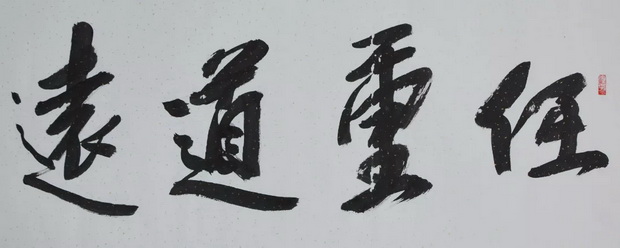 任重道遠